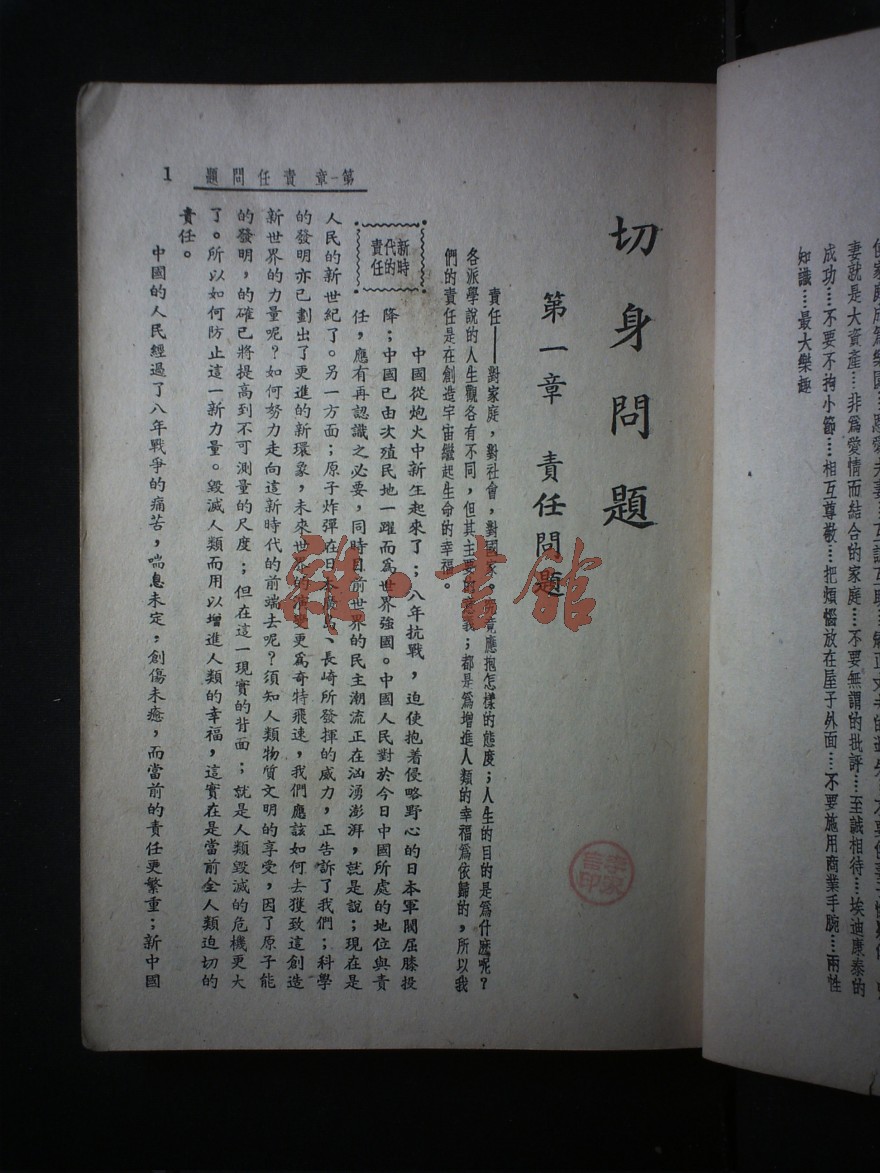 成功⋯不要不拘小節⋯相互尊敬⋯把煩惱放在屋子外面⋯不要施用商業手腕⋯兩性
妻就是大資產⋯非爲愛情而結合的家庭⋯不要無謂的批評⋯至誠相待⋯埃迪康泰的
知識⋯最大樂趣
切身問題
第一章 責任問題
責任——對家庭,對社會,對國家,究竟應抱怎樣的態度;人生的目的是爲什麽呢?
各派學說的人生觀各有不同,但其主要的意義;都是爲增進人類的幸福爲依歸的,所以我
們的責任是在創造宇宙繼起生命的幸福。
新時
代的
責任
中國從炮火中新生起來了;八年抗戰,迫使抱着侵略野心的日本軍閥屈膝投
降;中國已由次殖民地一躍而爲世界強國。中國人民對於今日中國所處的地位與責
任,應有再認識之必要,同時目前世界的民主潮流正在汹湧澎湃,就是說;現在是
人民的新世紀了。另一方面;原子炸彈在日本廣島、長崎所發揮的威力,正告訴了我們;科學
的發明亦已劃出了更進的新環象,未來世界的演變更爲奇特飛速,我們應該如何去獲致這創造
新世界的力量呢?如何努力走向這新時代的前端去呢?須知人類物質文明的享受,因了原子能
的發明,的確已將提高到不可測量的尺度;但在這一現實的背面;就是人類毀滅的危機更大
了。所以如何防止這一新力量。毀滅人類而用以增進人類的幸福,這實在是當前全人類迫切的
責任。
中國的人民經過了八年戰爭的痛苦,喘息未定,創傷未癒,而當前的責任更繁重;新中國
第一章 責任問題
1
雜·書館